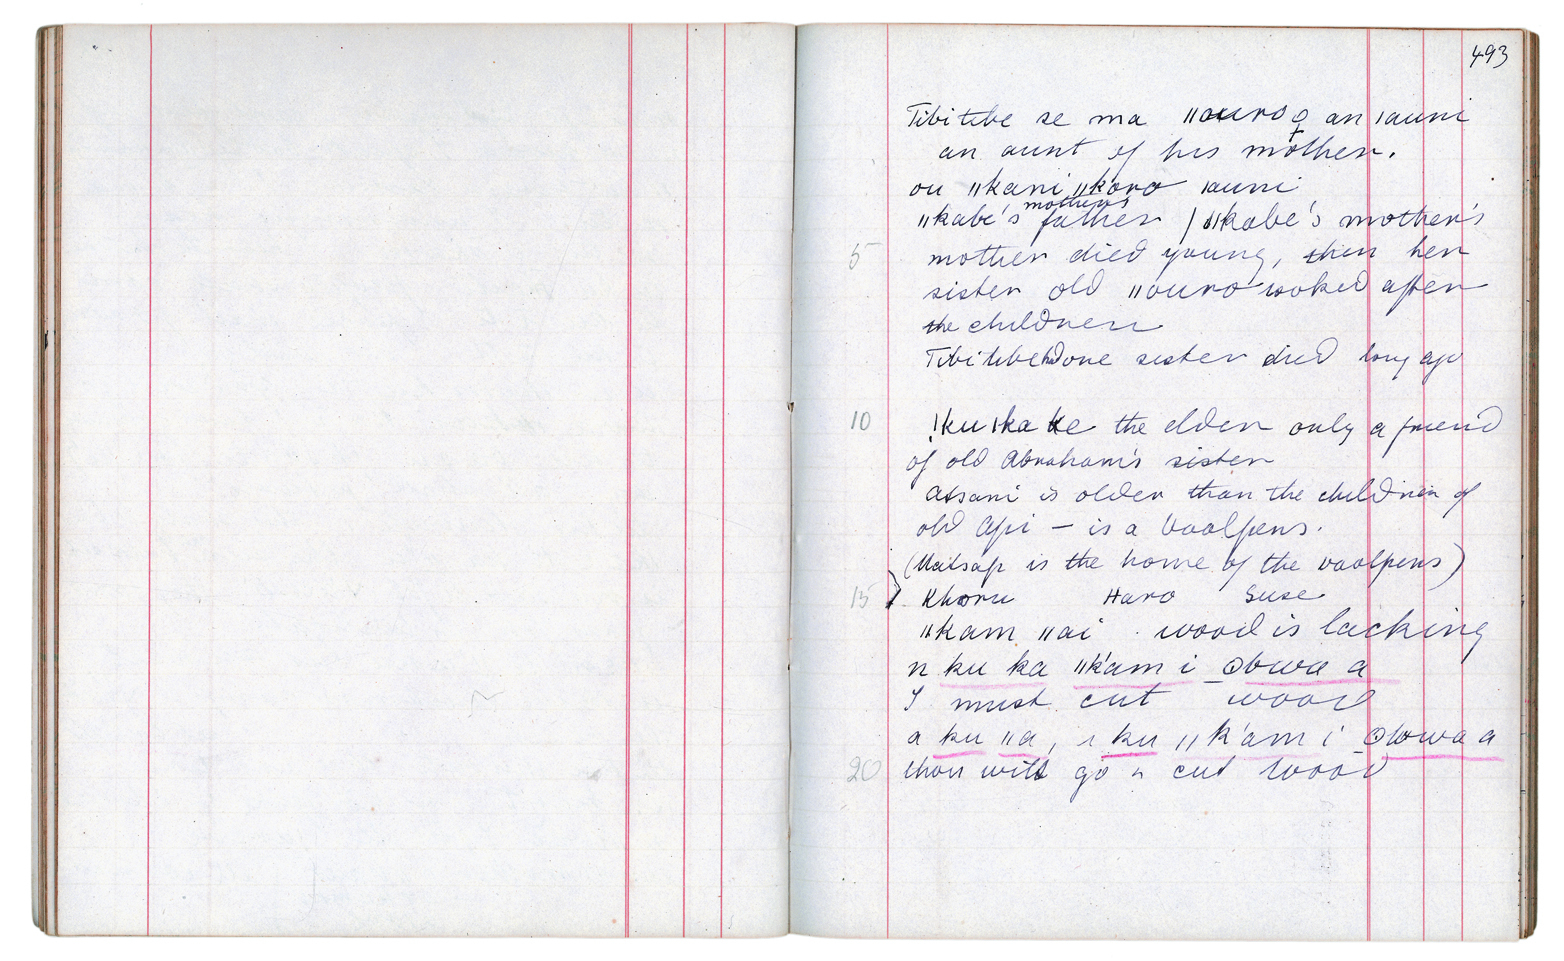 493
Tibitibe se ma ǁouro ♀ an ǀauni
an aunt of his mother.
ou ǁkani ǁk'oro ǀauni
mother's
ǁkabe's father / ǁkabe's mother's
5 mother died young, then her
sister old ǁouro looked after
the children
Tibitibe done sister died long ago
10 !kuǀka ke the elder only a friend
of old Abraham's sister
Atsani is older than the children of
old Api — is a Vaalpens.
(Maitsap is the home of the vaalpens)
15 Khoru Haro Suse
ǁkam ǁai . wood is lacking
n ku ka ǁk'am i ʘbwa a
I must cut wood
a ku ǁa, ı ku ǁk'am i ʘbwa a
20 thou wilt go n cut wood